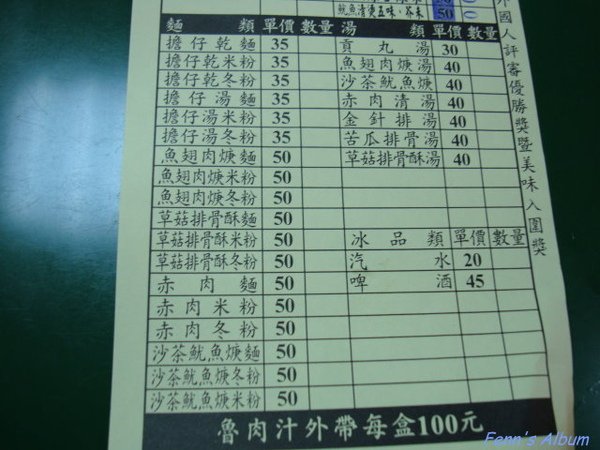 魷魚清爽五味、芥末 50
麵 類 單價 數量 湯 類 單價 數量
擔仔乾麵 35 貢丸湯 30
擔仔乾米粉 35 魚翅肉焿湯 40
擔仔乾冬粉 35 沙茶魷魚焿 40
擔仔湯麵 35 赤肉清湯 40
擔仔湯米粉 35 金針排湯 40
擔仔湯冬粉 35 苦瓜排骨湯 40
魚翅肉焿麵 50 草菇排骨酥湯 40
魚翅肉焿米粉 50
魚翅肉焿冬粉 50
草菇排骨酥麵 50
草菇排骨酥米粉 50 冰品類 單價 數量
草菇排骨酥冬粉 50 汽水 20
赤肉麵 50 啤酒 45
赤肉米粉 50
赤肉冬粉 50
沙茶魷魚焿麵 50
沙茶魷魚焿冬粉 50
沙茶魷魚焿米粉 50
魯肉汁外帶每盒100元
外國人評審優勝獎暨美味入圍獎
Fenn's Album